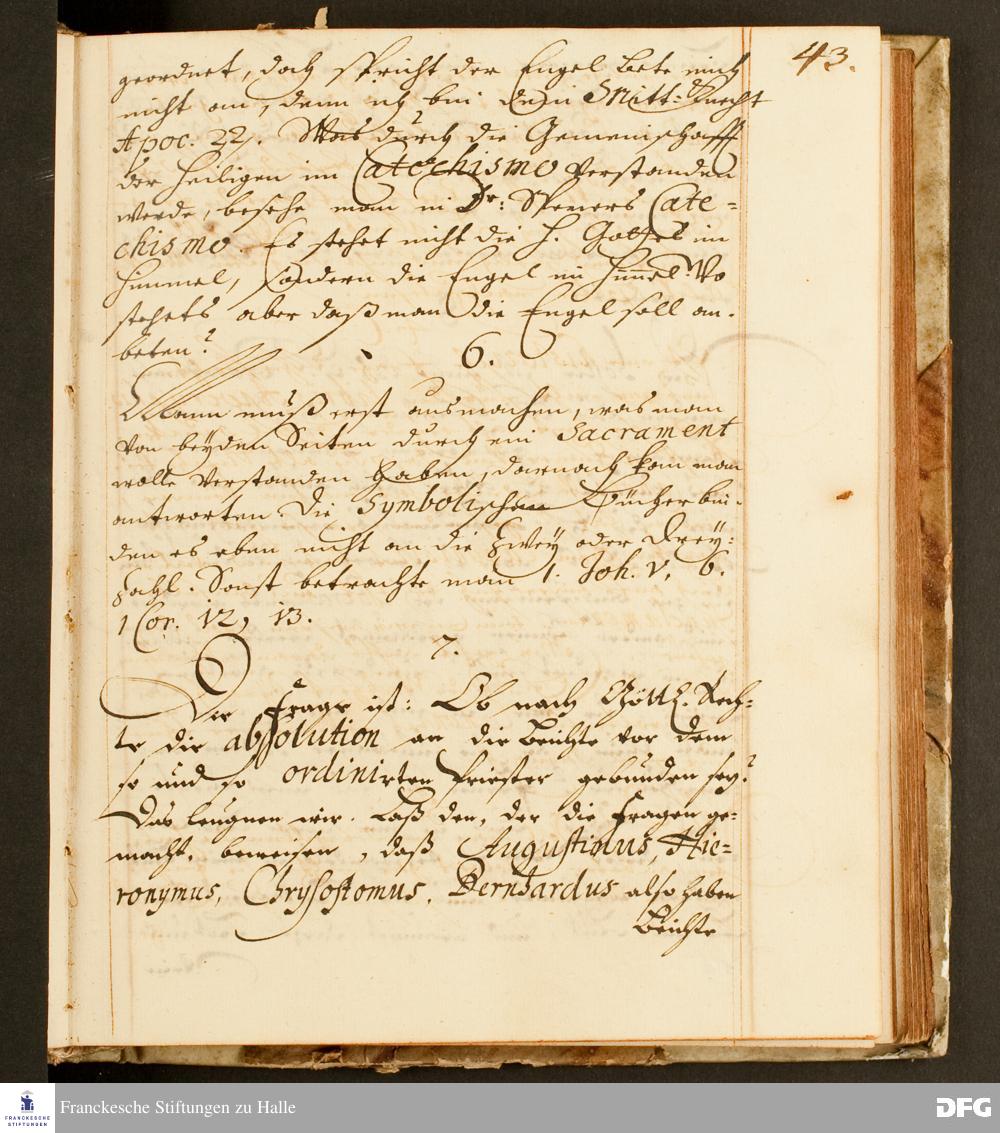 43.
geordnet, doch spricht der Engel bete mich
nicht an, denn ich bin dein Mitt-Knecht
Apoc. 22. Was durch die Gemeinschafft
der Heiligen im Catechismo verstanden
werde, besehe man in Dr: Speners Cate-
chismo. Es stehet nicht die H. Gottes im
Himmel, sondern die Engel im Himmel. Wo
stehets aber daß man die Engel soll an-
beten?
6.
Mann muß erst ausmachen, was man
von beyden Seiten durch ein Sacrament
wolle verstanden haben, darnach kan man
antworten die Symbolischen Bücher bin-
den es eben nicht an die Zwey oder Drey-
zahl. Sonst betrachte man 1. Joh. V, 6.
1 Cor. 12, 13.
7.
Die Frage ist: Ob nach Göttl. Rech-
te die absolution an die Beichte vor dem
so und so ordinirten Priester gebunden sey?
Das leugnen wir. Laß den, der die Fragen ge-
macht, beweisen, daß Augustinus, Hie-
ronymus, Chrysostomus, Bernhardus also haben
Beichte
Franckesche Stiftungen zu Halle
FRANCKESCHE
STIFTUNGEN
DFG